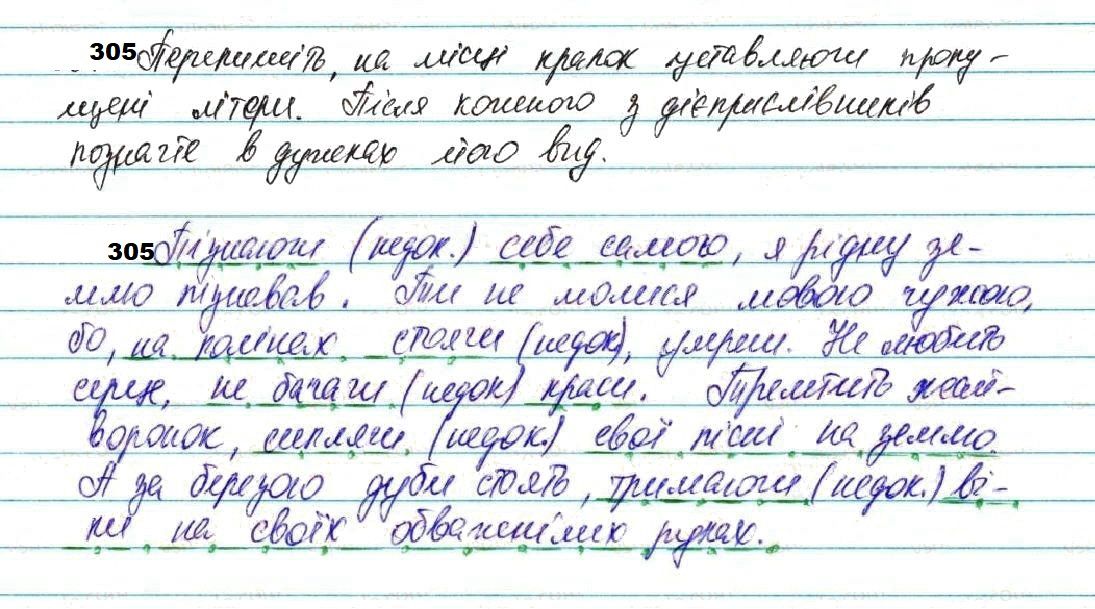 305 Перепишіть, на місці крапок уставляючи пропу-
щені літери. Після кожного з дієприслівників
позначте в дужках його вид.
305 Пізнаючи (недок.) себе самого, я рідну зе-
млю пізнавав. Ти не молися мовою чужою,
бо, на колінах стоячи (недок), умреш. Не любить
серце, не бачачи (недок) краси. Тремтить жай-
воронок, сиплячи (недок.) свої пісні на землю.
А за березою дуби стоять, тримаючи (недок.) ві-
ки на своїх обважнілих руках.